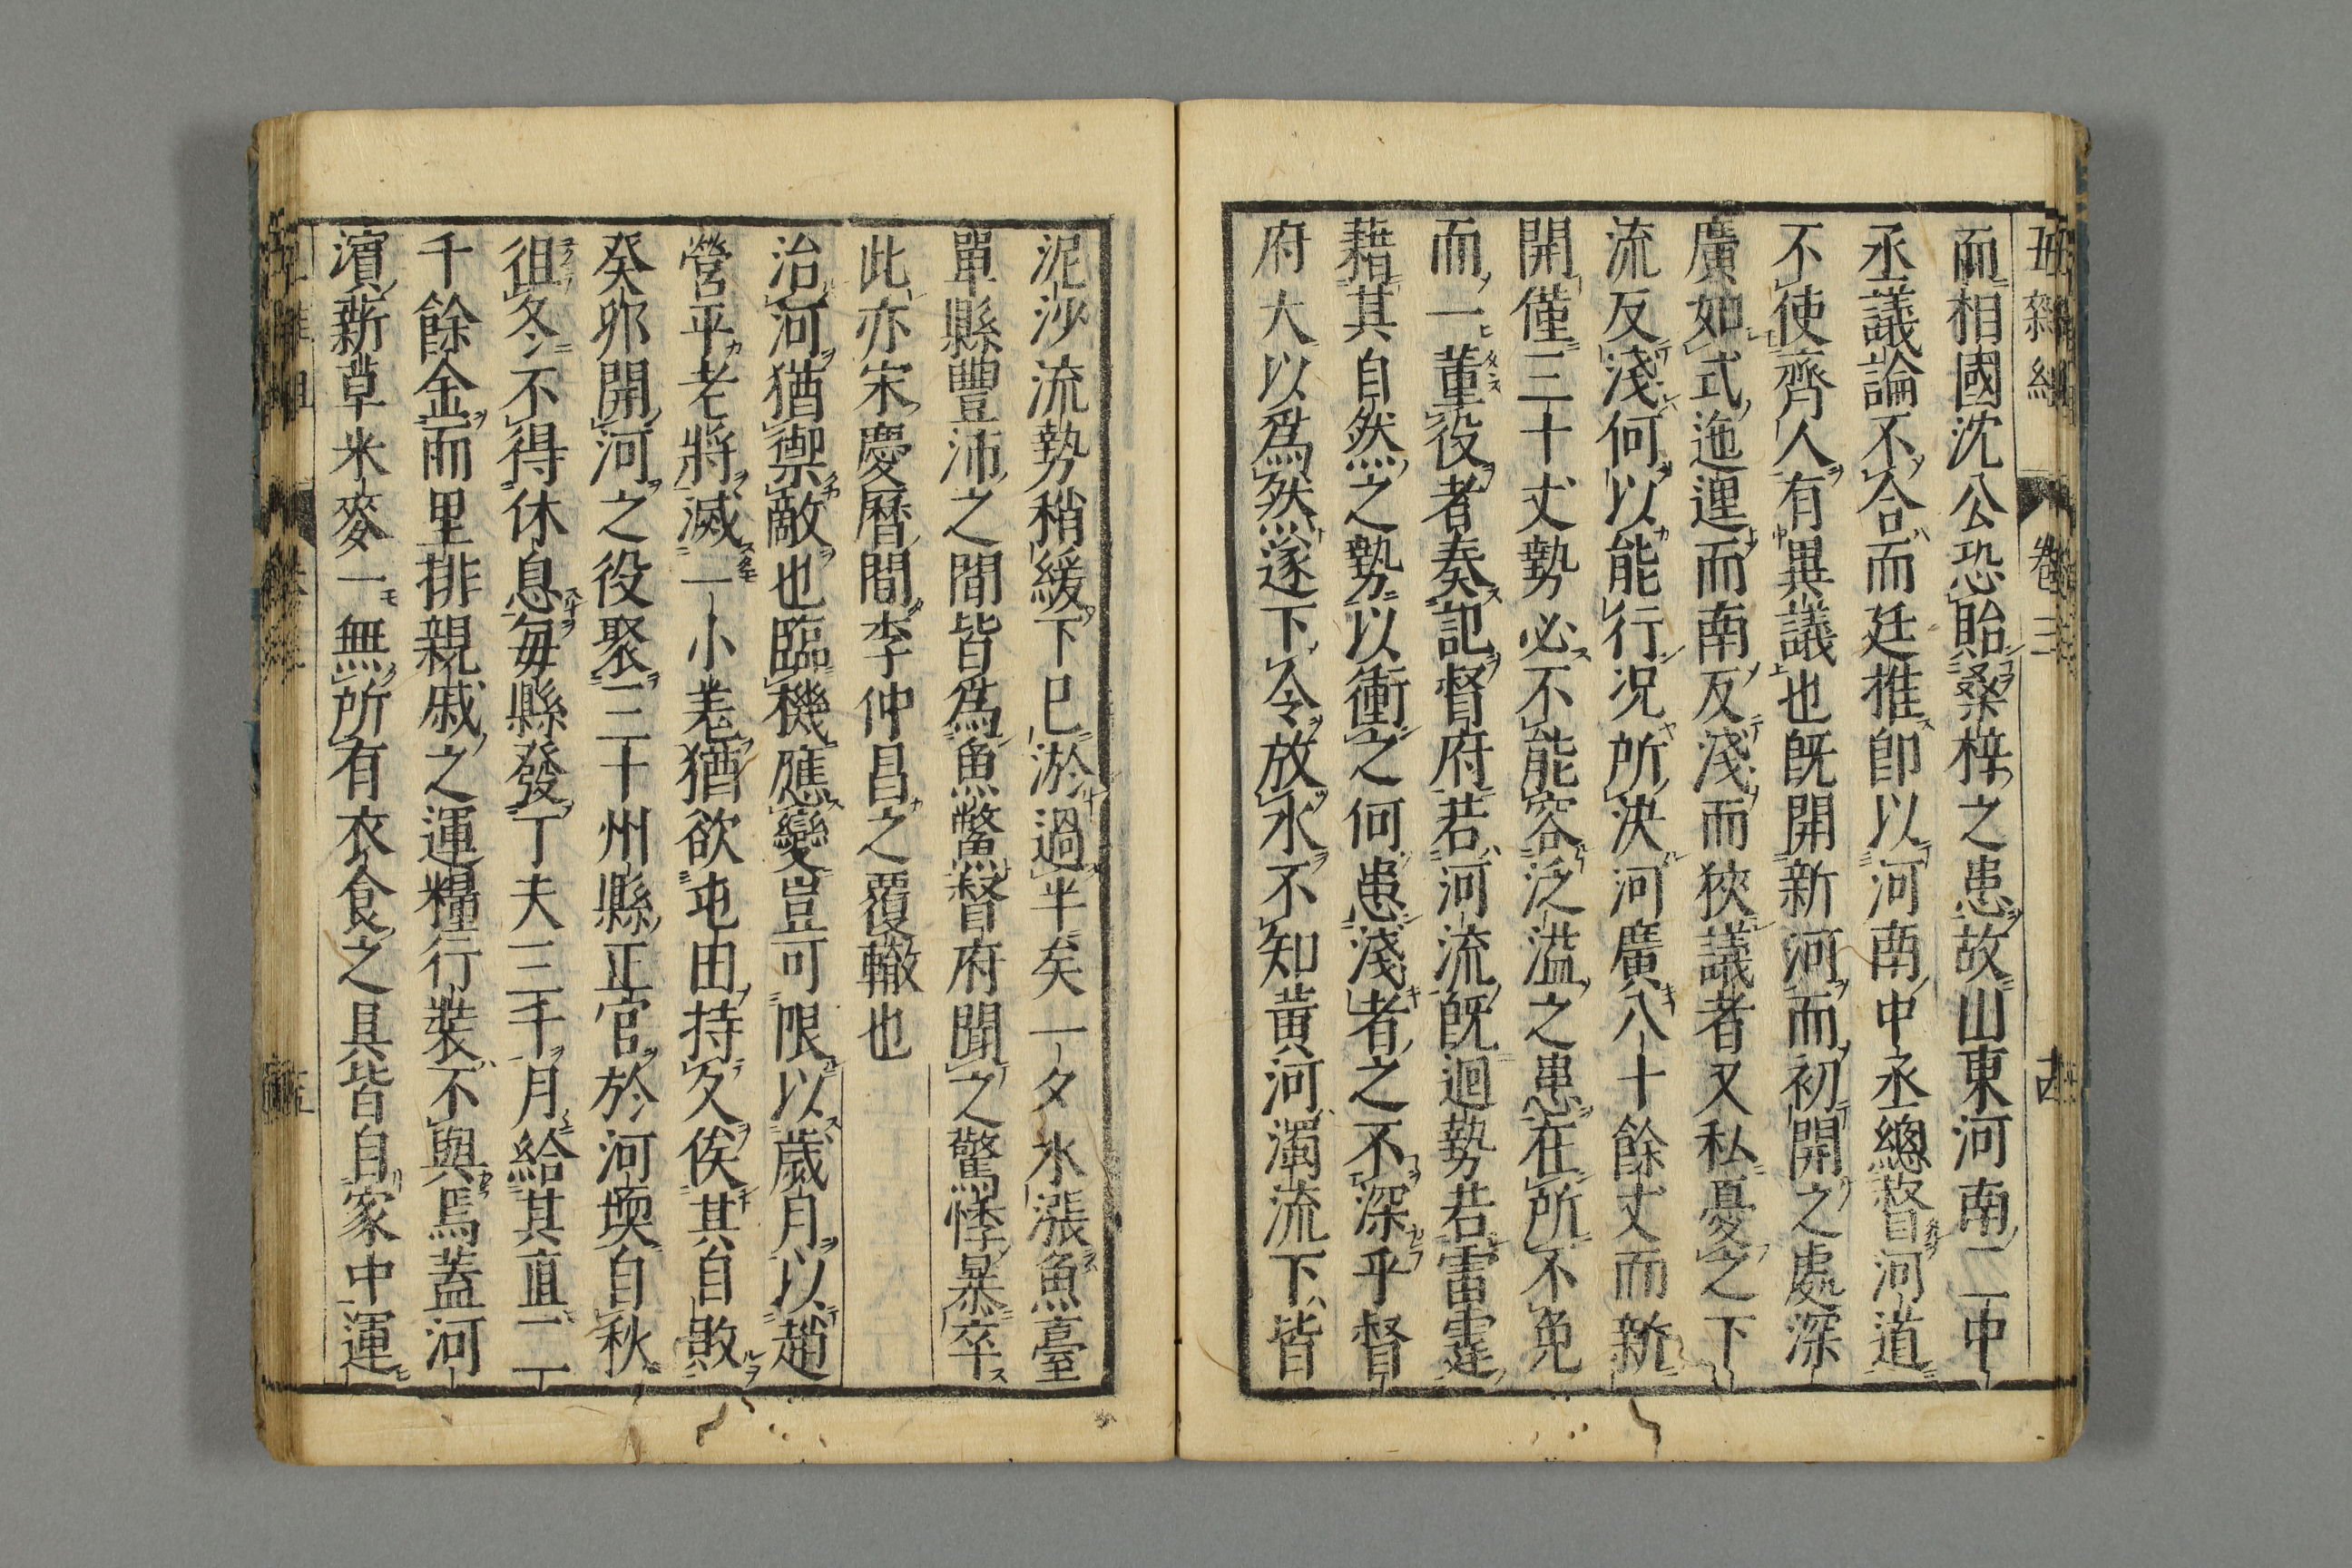 五雜組 卷三
而相國沈公恐貽桑梓之患故山東河南二中
丞議論不合而廷推卽以河南中丞總督河道
不使齊人有異議也旣開新河而初開之處深
廣如式迤運而南反淺而狹議者又私憂之下
流反淺何以能行況所決河廣八十餘丈而新
開僅三十丈勢必不能容泛溢之患在所不免
而一董役者奏記督府若河流旣迴勢若雷霆
藉其自然之勢以衝之何患淺者之不深乎督
府大以爲然遂下令放水不知黃河濁流下皆
泥沙流勢稍緩下巳淤過半矣一夕水漲魚臺
單縣豐沛之間皆爲魚鱉督府聞之驚悸暴卒
此亦宋慶曆間李仲昌之覆轍也
治河猶禦敵也臨機應變豈可限以歲月以趙
營平老將滅一小羌猶欲屯田持久俟其自敗
癸卯開河之役聚三十州縣正官於河堧自秋
徂冬不得休息每縣發丁夫三千月給其直二
千餘金而里排親戚之運糧行裝不與焉蓋河
濱薪草米麥一無所有衣食之具皆自家中運